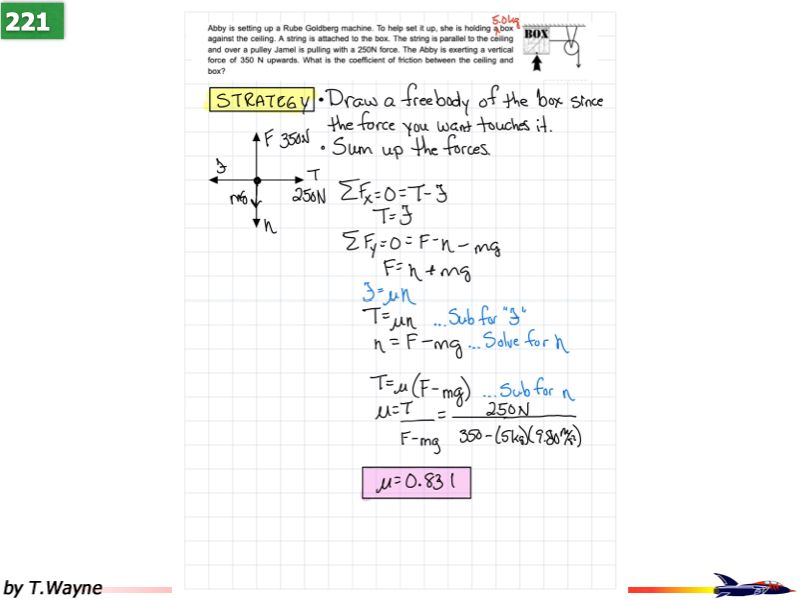 221
Abby is setting up a Rube Goldberg machine. To help set it up, she is holding a 5.0kg box
against the ceiling. A string is attached to the box. The string is parallel to the ceiling
and over a pulley Jamel is pulling with a 250N force. The Abby is exerting a vertical
force of 350 N upwards. What is the coefficient of friction between the ceiling and
box?
BOX
STRATEGY • Draw a freebody of the box since
the force you want touches it.
• Sum up the forces.
F 350N
f
T
250N
mg
n
ΣFx=0=T-f
T=f
ΣFy=0=F-n-mg
F=n+mg
f=μn
T=μn ...Sub for "f"
n=F-mg...Solve for n
T=μ(F-mg) ...Sub for n
μ=T/F-mg = 250N/350-(5kg)(9.80m/s²)
μ=0.831
by T.Wayne